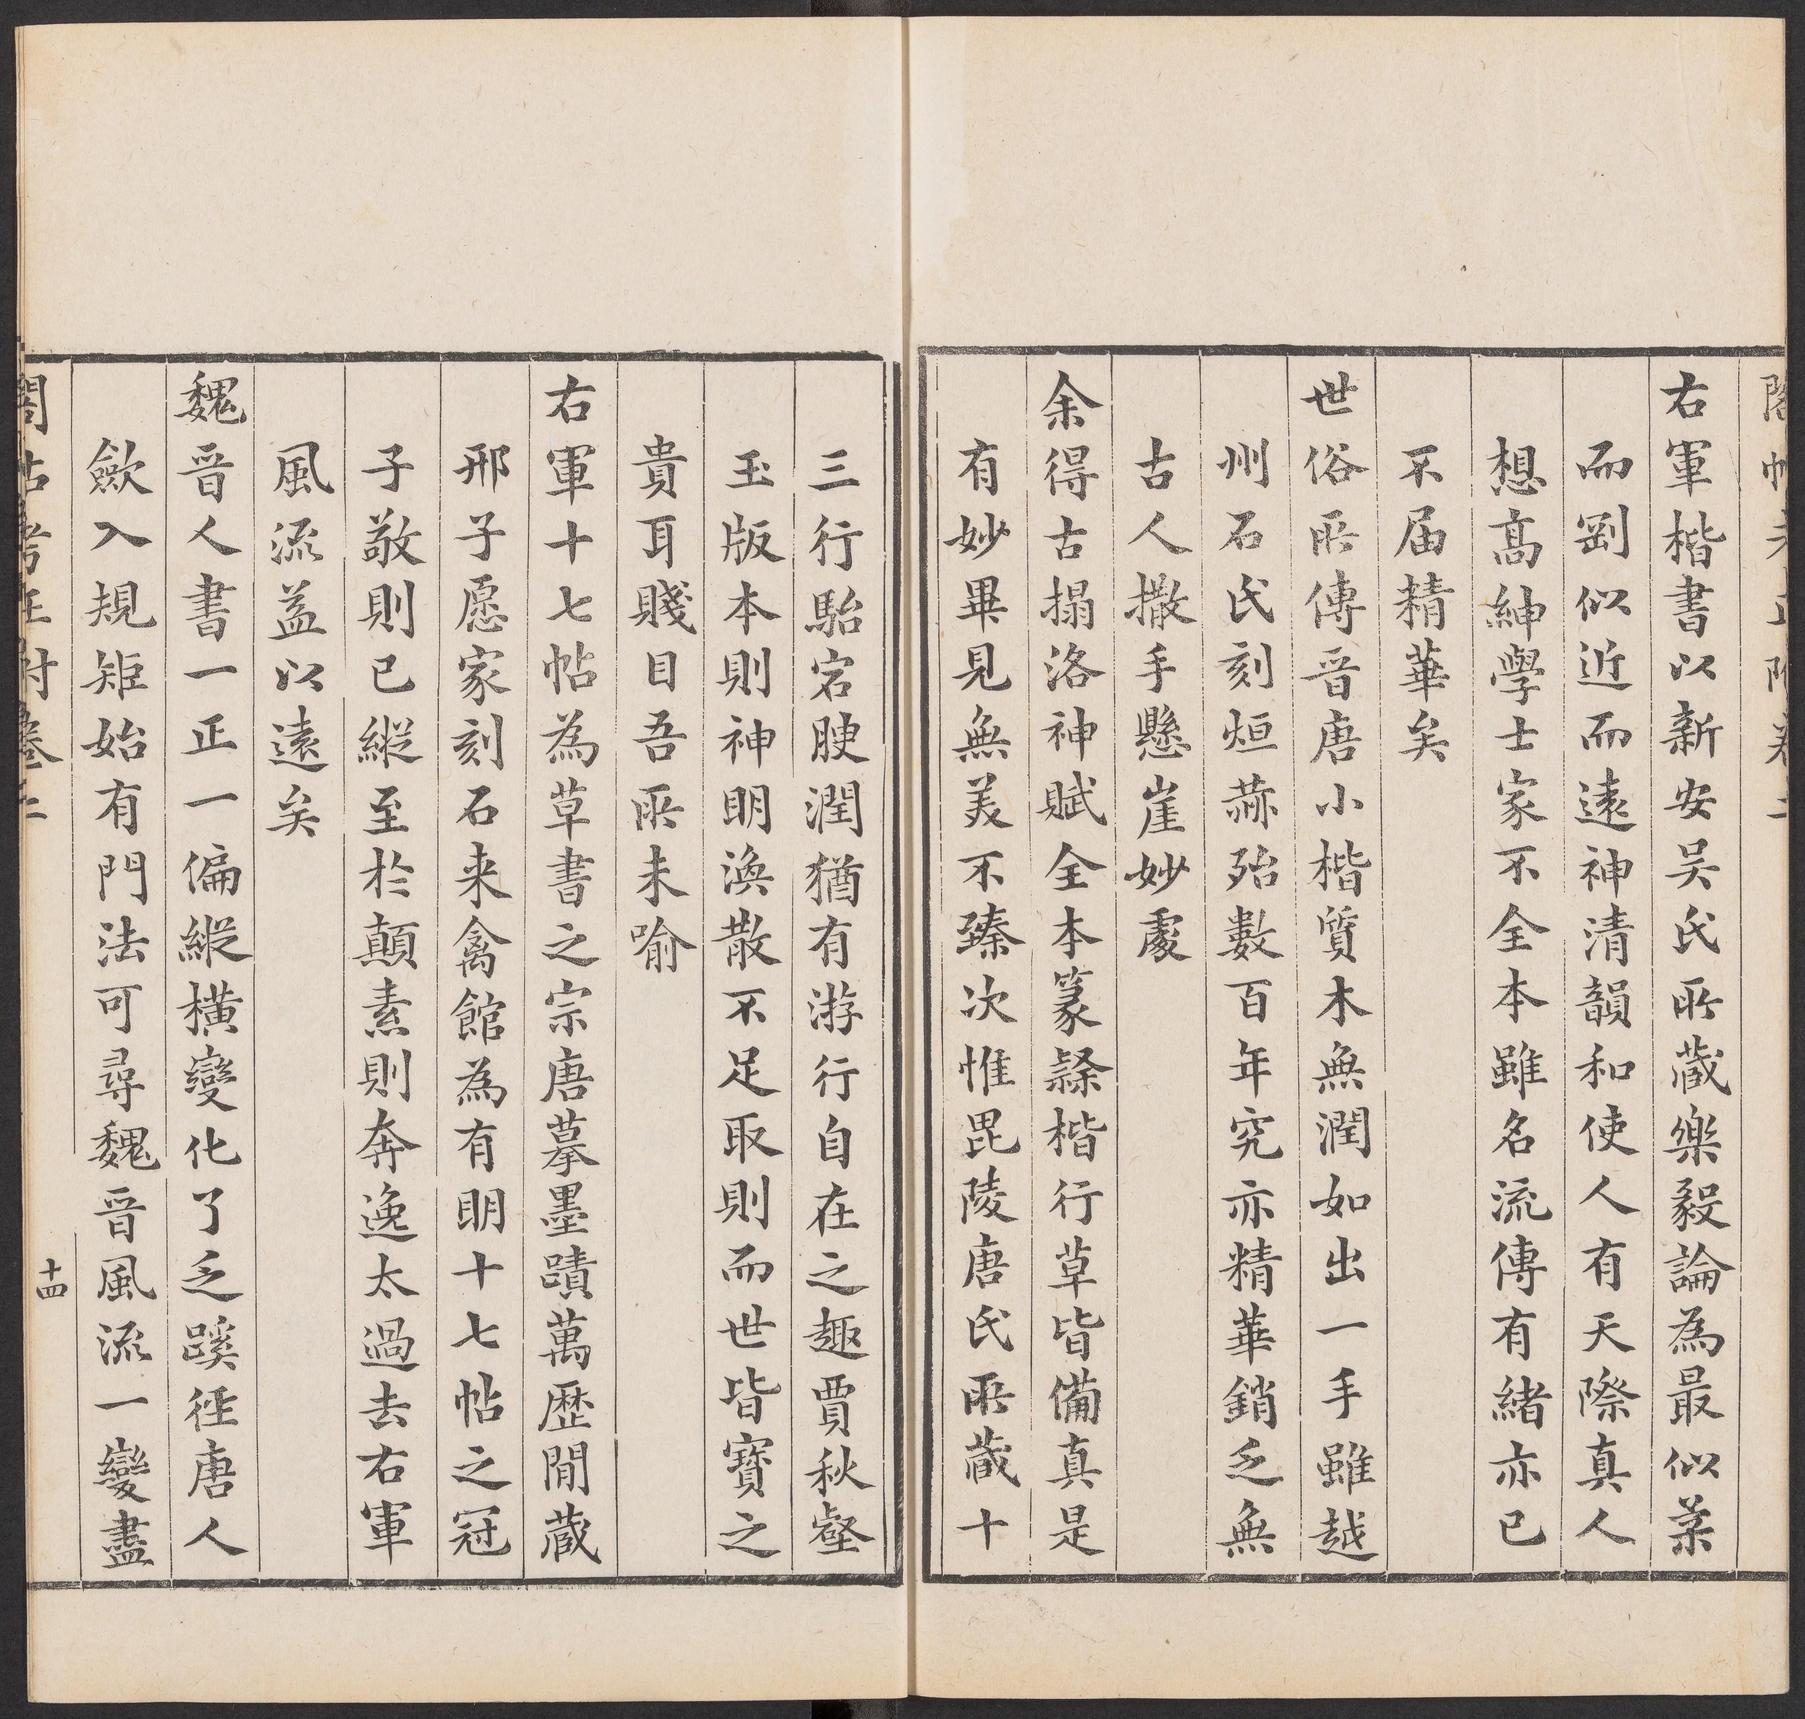 右軍楷書以新安吴氏所藏樂毅論為最似柔
而剛似近而遠神清韻和使人有天際真人
想高紳學士家不全本雖名流傳有緒亦已
不届精華矣
世俗所傳晉唐小楷質木無潤如出一手雖越
州石氏刻烜赫殆數百年究亦精華銷乏無
古人撒手懸崖妙處
余得古搨洛神賦全本篆隸楷行草皆備真是
有妙畢見無美不臻次惟毘陵唐氏所藏十
三行駘宕腴潤猶有游行自在之趣賈秋壑
玉版本則神明渙散不足取則而世皆寶之
貴耳賤目吾所未喻
右軍十七帖為草書之宗唐摹墨蹟萬歷閒藏
邢子愿家刻石来禽館為有明十七帖之冠
子敬則已縱至於顛素則奔逸太過去右軍
風流益以遠矣
魏晉人書一正一偏縱橫變化了乏蹊徑唐人
斂入規矩始有門法可尋魏晉風流一變盡
閣帖考正附卷二
十四